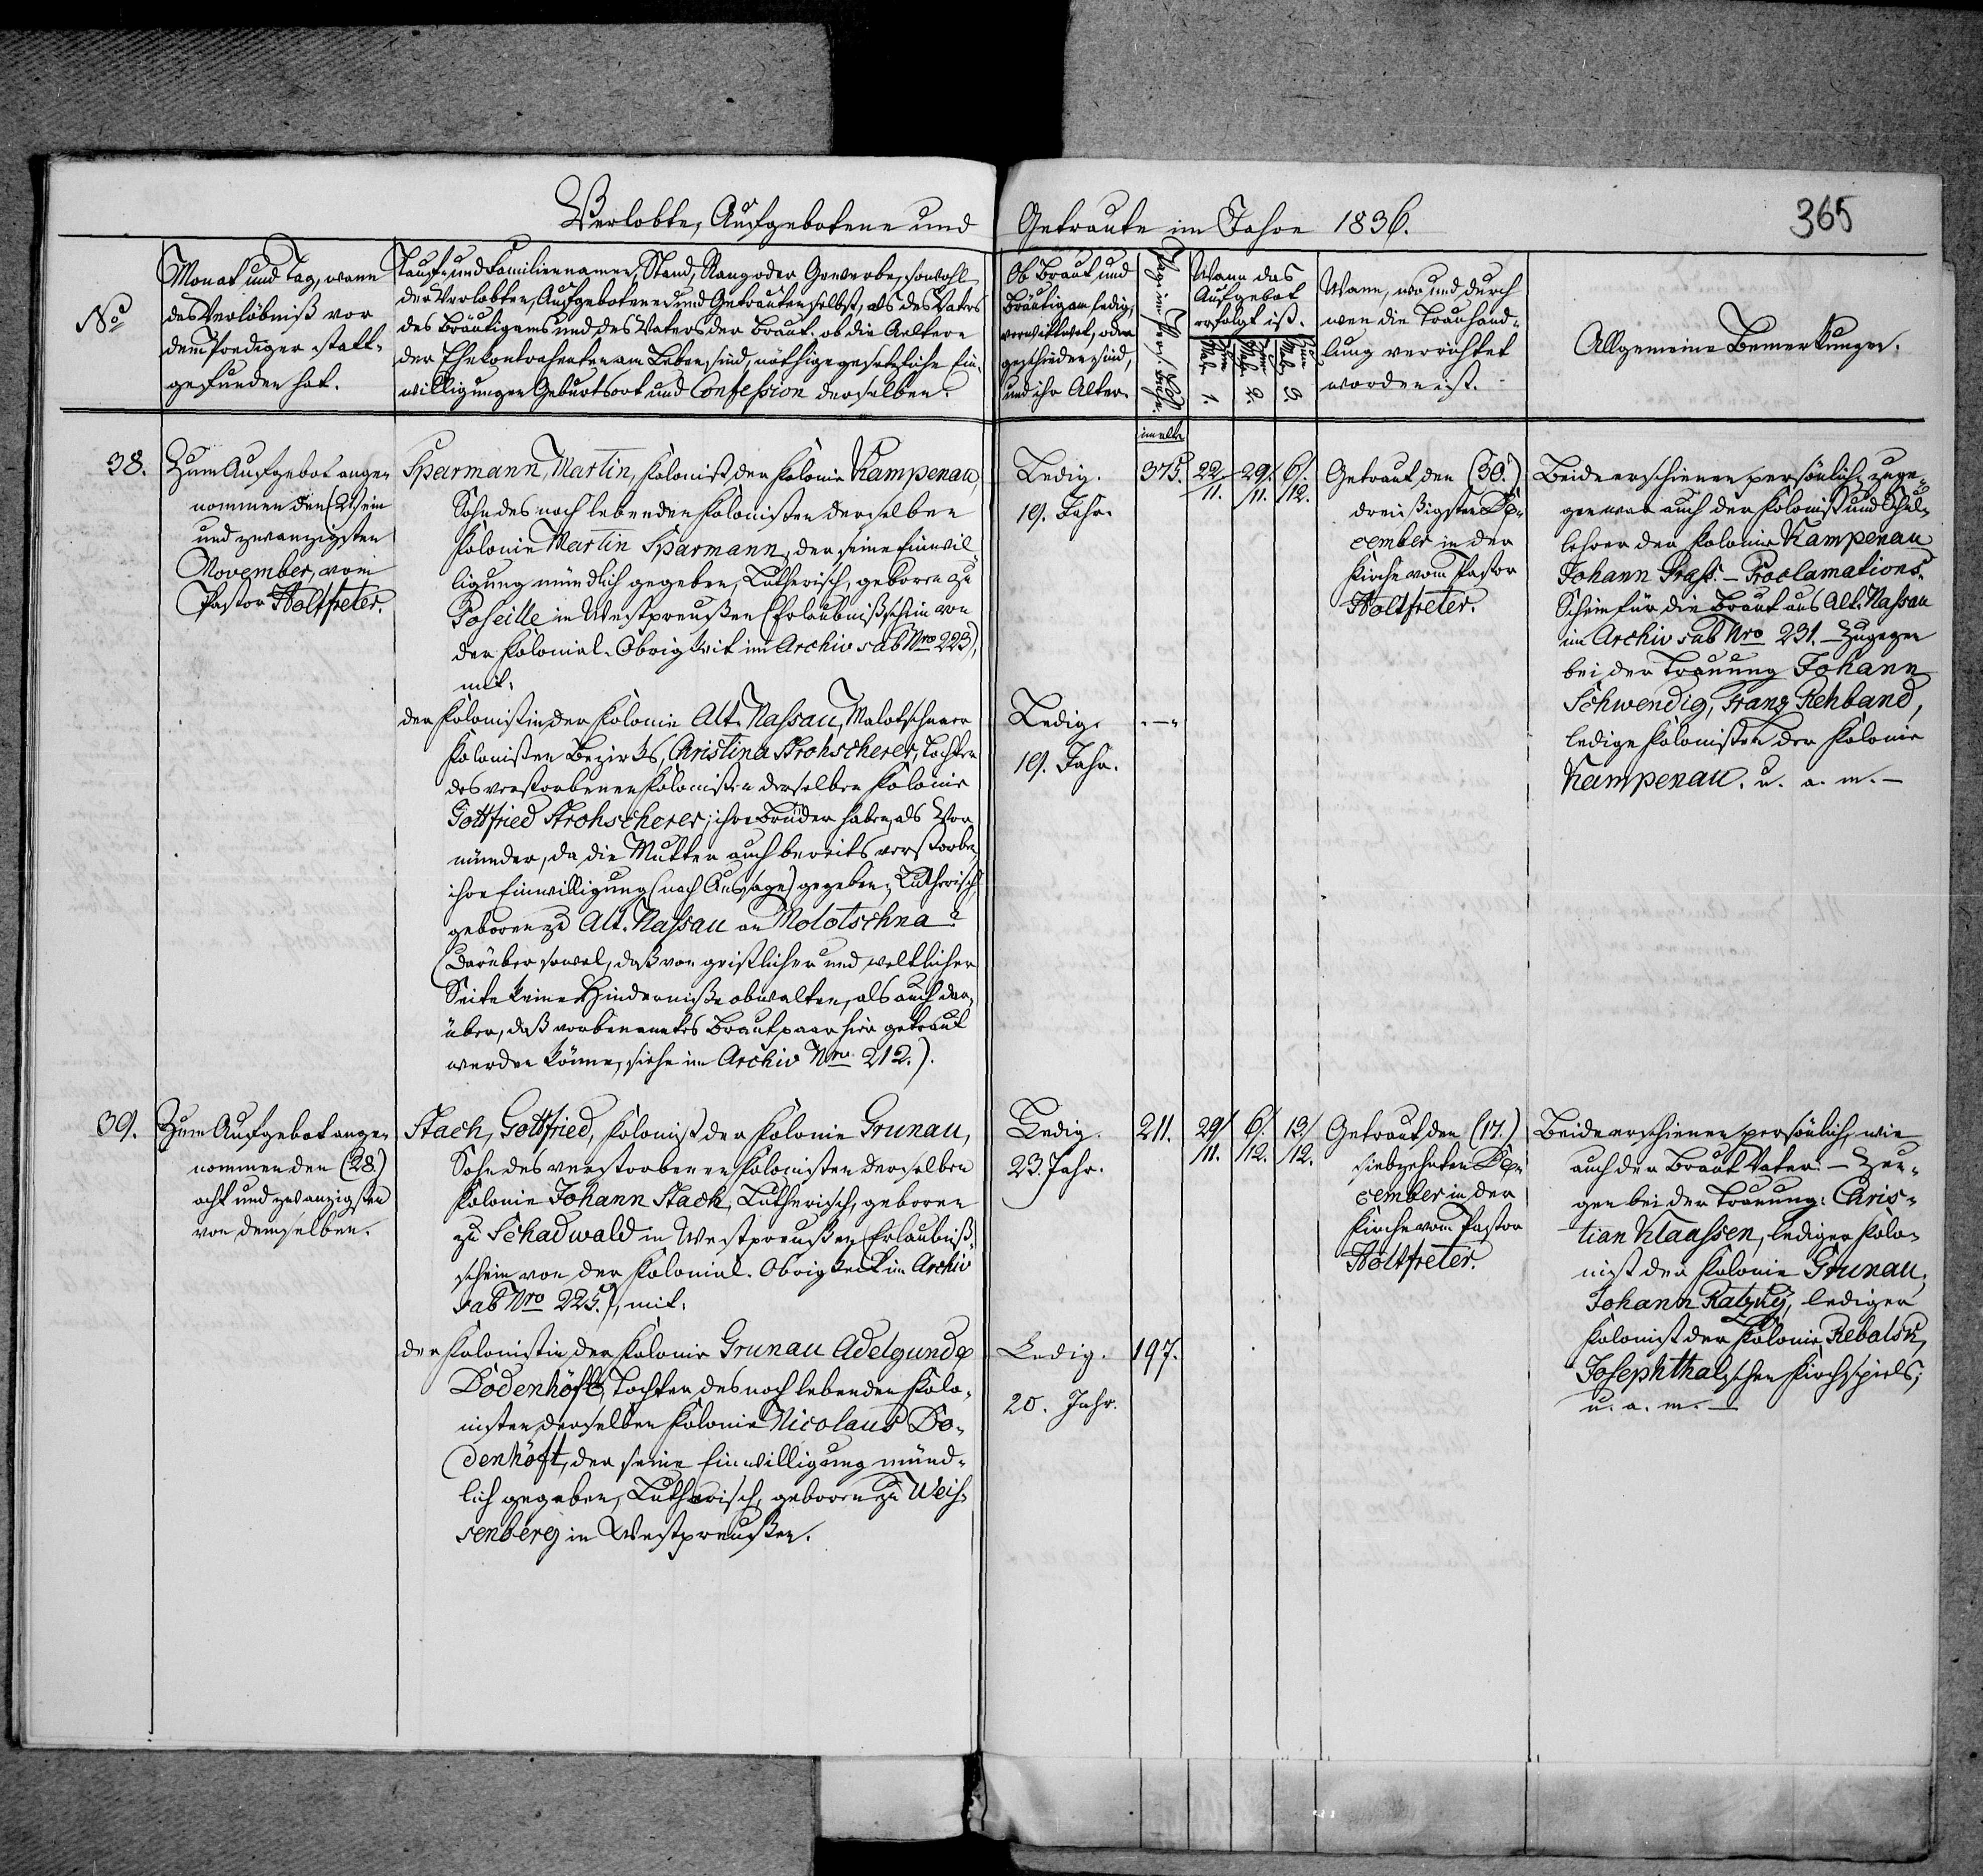 Verlobte, Aufgebotene und Getraute im Jahre 1836.
365
No
Monat und Tag, wann
das Verlöbniß vor
dem Prediger statt-
gefunden hat.
Tauf- und Familiennamen, Stand, Rang oder Gewerbe, sowohl
der Verlobten, Aufgebotenen und Getrauten selbst, als des Vaters
des Bräutigams und des Vaters der Braut, ob die Aeltern
der Ehekontrahenten am Leben sind, nöthige gesetzliche Ein-
willigungen Geburtsort und Confession derselben.
Ob Braut und
Bräutigam ledig,
verwittwet, oder
geschieden sind,
und ihr Alter.
Wann das
Aufgebot
erfolgt ist.
Zum 1. Mal.
Zum 2. Mal.
Zum 3. Mal.
Wann, wo und durch
wen die Trauhand-
lung verrichtet
worden ist.
Allgemeine Bemerkungen.
38.
Zum Aufgebot ange-
nommen den (21.) ein
und zwanzigsten
November, vom
Pastor Holtfreter.
Sparmann, Martin, Kolonist der Kolonie Kampenau,
Sohn des noch lebenden Kolonisten derselben
Kolonie Martin Sparmann, der seine Einwil-
ligung mündlich gegeben, Lutherisch, geboren zu
Poseille in Westpreußen (Erlaubnißschein von
der Kolonial-Obrigkeit im Archiv sub Nro 223),
mit:
der Kolonistin der Kolonie Alt-Nassau, Molotschnaer
Kolonisten Bezirks, Christina Strohscherer, Tochter
des verstorbenen Kolonisten derselben Kolonie
Gottfried Strohscherer; ihre Brüder haben, als Vor-
münder, da die Mutter auch bereits verstorben,
ihre Einwilligung (nach Aussage) gegeben, Lutherisch,
geboren zu Alt-Nassau an Molotschna
(Darüber sowol, daß von geistlicher und weltlicher
Seite keine Hinderniße obwalten, als auch dar-
über, daß vorbenanntes Brautpaar hier getraut
werden könne, siehe im Archiv Nro 212.).
Ledig.
19. Jahr.
im alte
375.
22/11.
29/11.
6/12.
Ledig.
19. Jahr.
"—"
Getraut den (30.)
dreißigsten De-
cember in der
Kirche vom Pastor
Holtfreter.
Beide erschienen persönlich, zuge-
gen war auch der Kolonist und Schul-
lehrer der Kolonie Kampenau
Johann Prass. - Proclamations-
Schein für die Braut aus Alt-Nassau
im Archiv sub Nro 231. - Zugegen
bei der Trauung Johann
Schwendig, Franz Rehband,
ledige Kolonisten der Kolonie
Kampenau. u. a. m. -
39.
Zum Aufgebot ange-
nommen den (28.)
acht und zwanzigsten
von demselben.
Stach, Gottfried, Kolonist der Kolonie Grunau,
Sohn des verstorbenen Kolonisten derselben
Kolonie Johann Stach, Lutherisch, geboren
zu Schadwald in Westpreußen (Erlaubniß-
schein von der Kolonial-Obrigkeit im Archiv
sub Nro 225.), mit:
der Kolonistin der Kolonie Grunau Adelgunde
Dodenhöft, Tochter des noch lebenden Kolo-
nisten derselben Kolonie Nicolaus Do-
denhöft, der seine Einwilligung münd-
lich gegeben, Lutherisch, geboren zu Weis-
senberg in Westpreußen.
Ledig.
23. Jahr.
211.
29/11.
6/12.
13/12.
Ledig.
20. Jahr.
197.
Getraut den (17.)
siebzehnten De-
cember in der
Kirche vom Pastor
Holtfreter.
Beide erschienen persönlich, wie
auch der Braut Vater. - Zeu-
gen bei der Trauung: Chris-
tian Klaassen, lediger Kolo-
nist der Kolonie Grunau,
Johann Katzky, lediger
Kolonist der Kolonie Rebalsk,
Josephthalschen Kirchspiels;
u. a. m. -